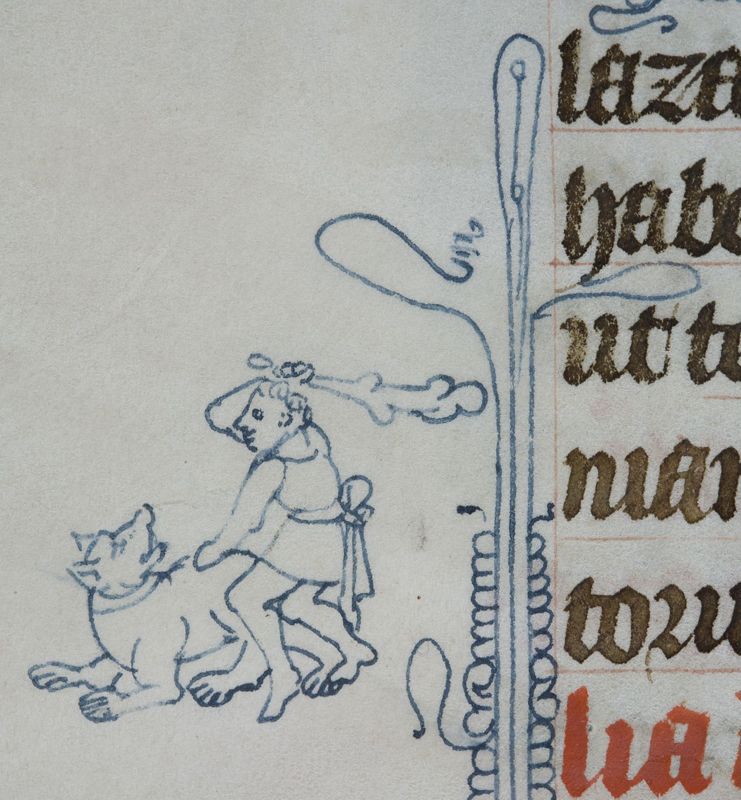 laza
habe
ut te
nian
toru
lia